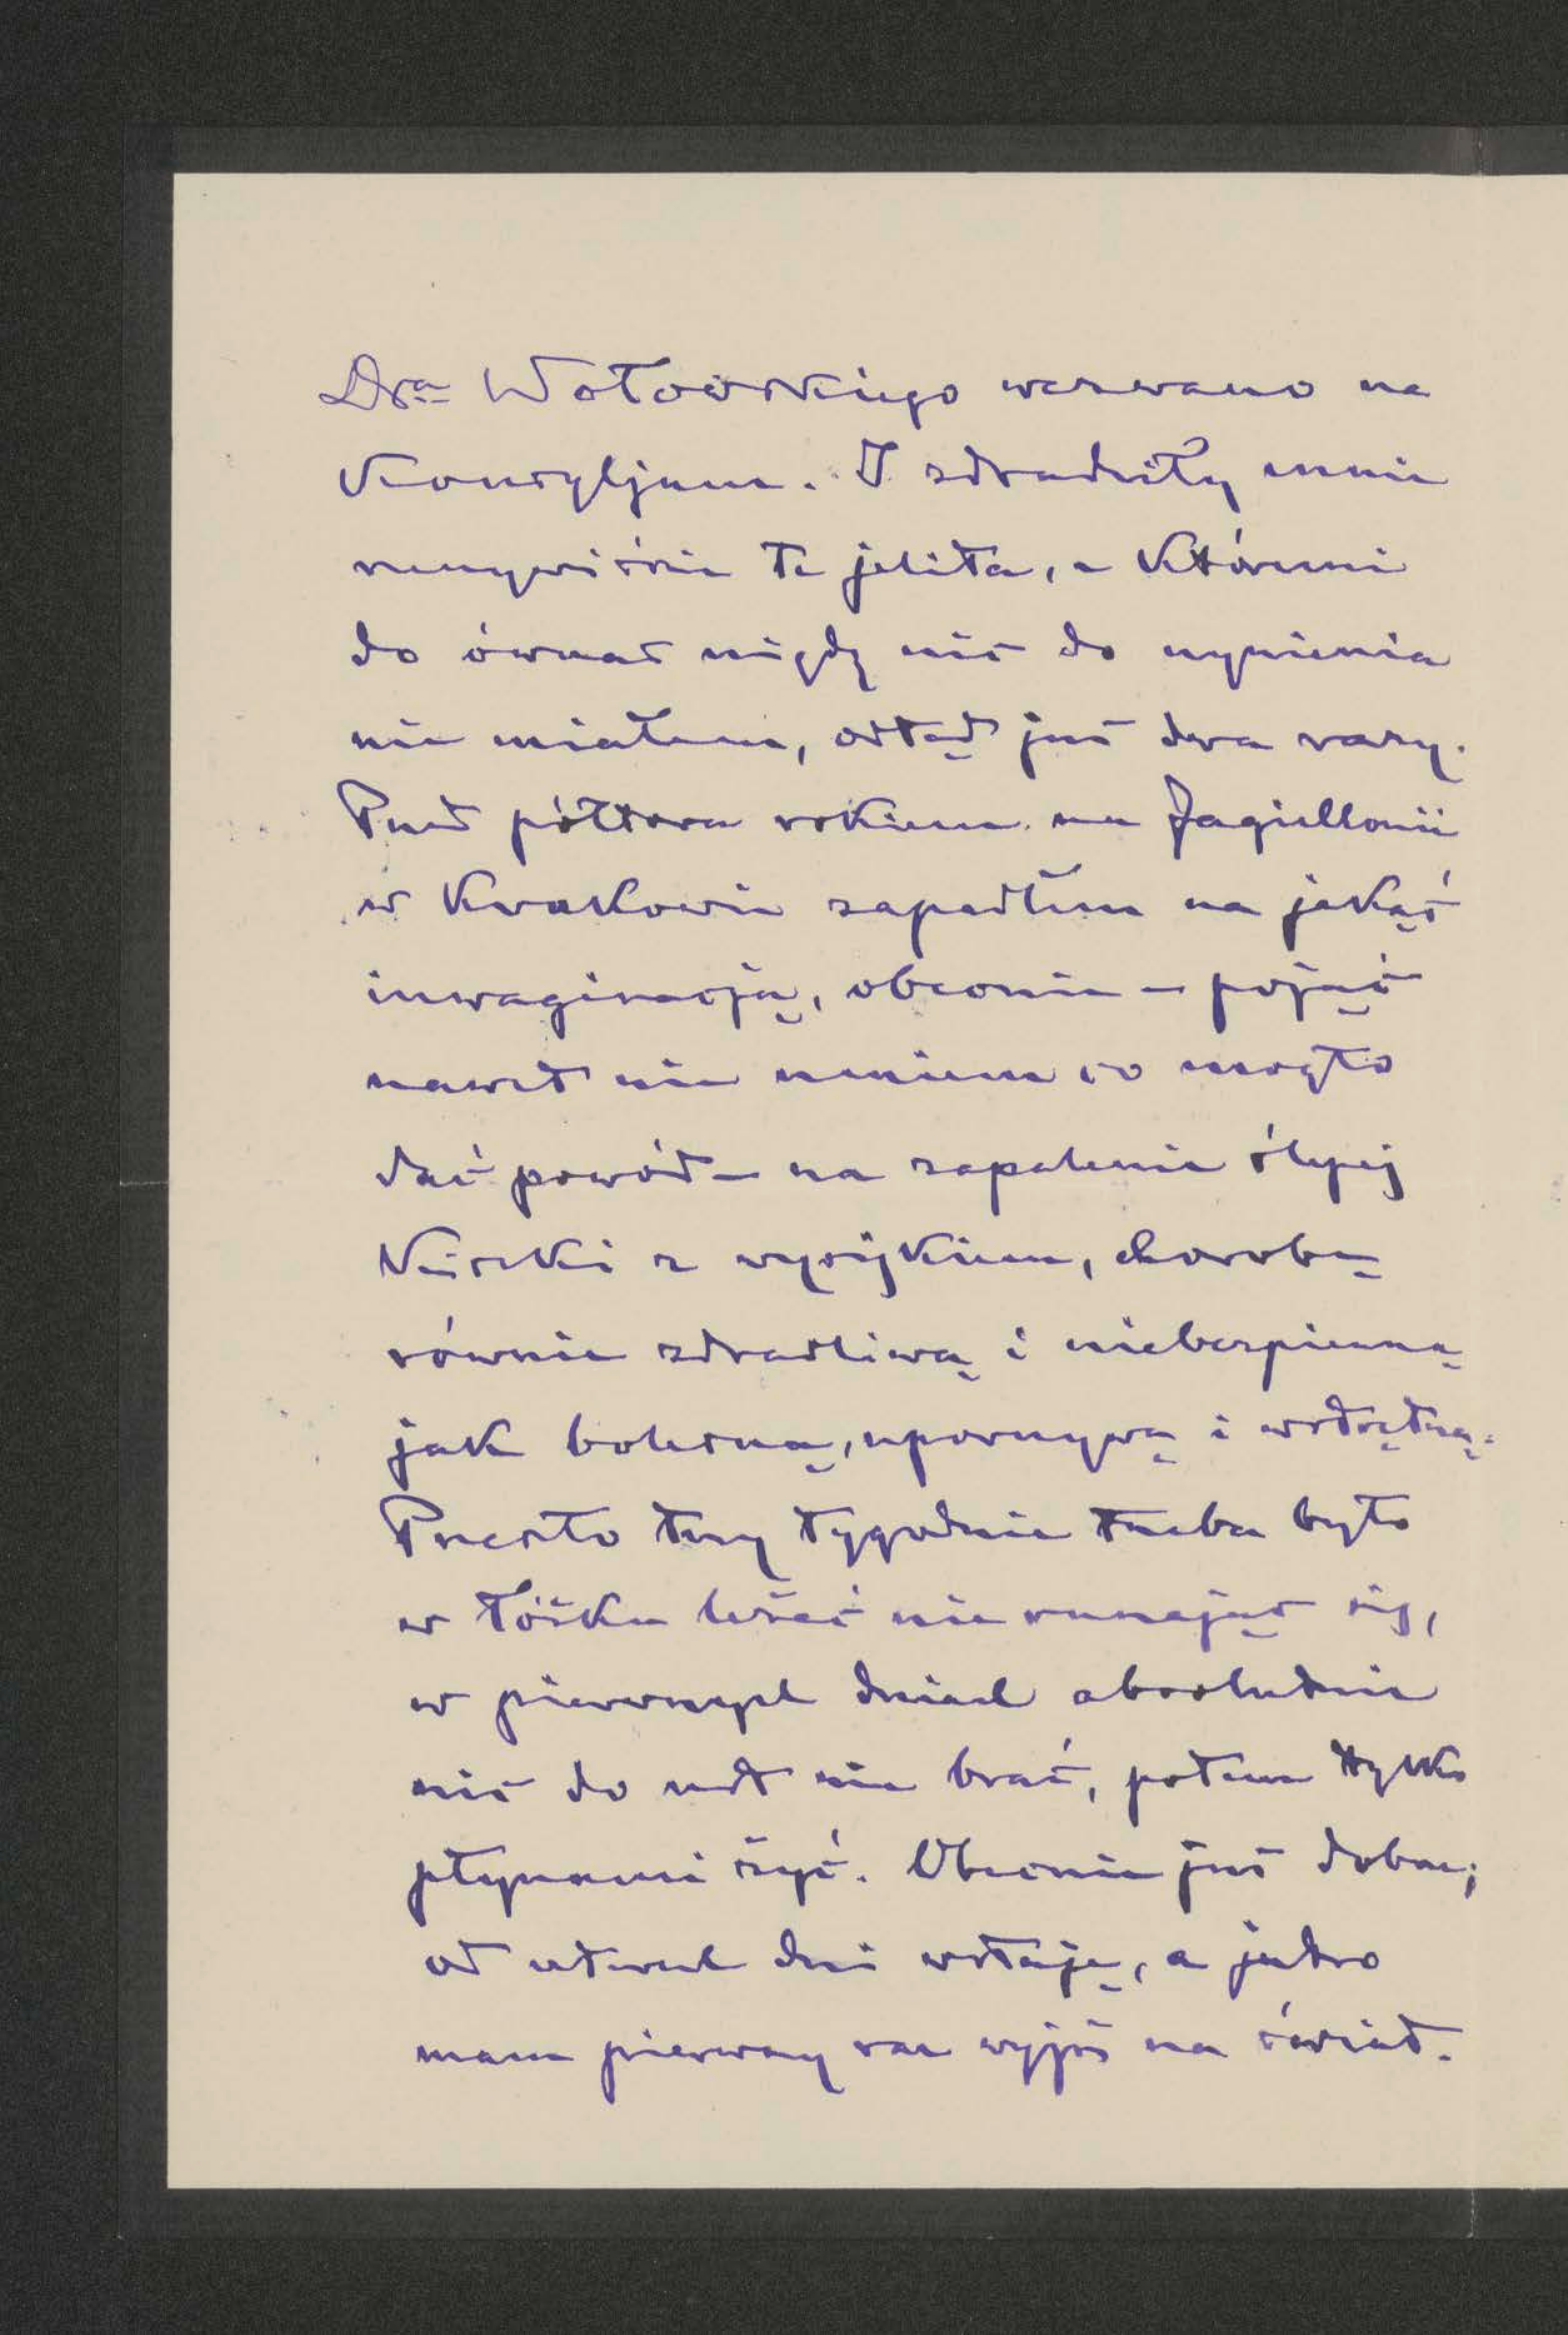 Dra Wołowskiego wezwano na
Konsyljum. I zdradziły mnie
rzeczywiście te jelita, z któremi
do ówczas nigdy nic do czynienia
nie miałem, odtąd już dwa razy.
Przed półtora rokiem na Jagiellonii
w Krakowie zapadłem na jakąś
inwaginacją, obecnie – pojąć
nawet nie umiem co mogło
dać powód – na zapalenie ślepej
Kiszki z wysiękiem, chorobę
równie zdradliwą i niebezpieczną
jak bolesną, uporczywą i wstrętną.
Przeszło trzy tygodnie trzeba było
w łóżku leżeć nie ruszając się,
w pierwszych dniach absolutnie
nic do ust nie brać, potem tylko
płynami żyć. Obecnie już dobrze;
od czterech dni wstaję, a jutro
mam pierwszy raz wyjść na świat.